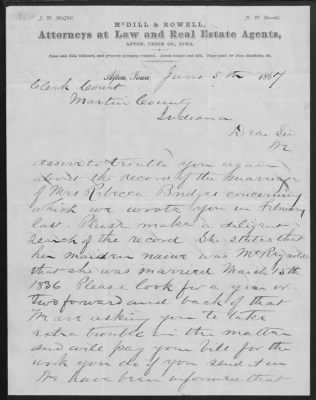 J. W. McDill.
N. W. Rowell.
McDILL & ROWELL,
Attorneys at Law and Real Estate Agents,
AFTON, UNION CO., IOWA.
Afton, Iowa, June 5th 1867
Clerk Court
Martin County
Indiana
Dear Sir
We
desire to trouble you again
about the record of the marriage
of Mrs Rebecca Bridges concerning
which we wrote you in February
last. Please make a diligent
search of the record. She states that
her maiden name was McReynolds
that she was married March 15th
1836 Please look for a year or
two forward and back of that
We are asking you to take
extra trouble in the matter
and will pay your bill for the
work you do if you send it in
We have been informed that